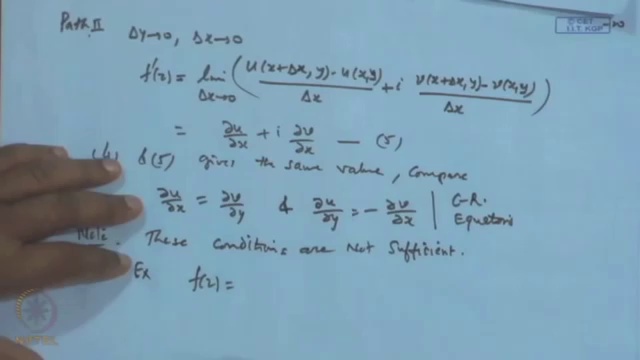 Path II Δy→0, Δx→0
© CET
I.I.T. KGP
f'(z) = lim Δx→0 ( u(x+Δx, y) - u(x,y) / Δx + i v(x+Δx, y) - v(x,y) / Δx )
= ∂u/∂x + i ∂v/∂x — (5)
(4) & (5) gives the same value, compare
∂u/∂x = ∂v/∂y & ∂u/∂y = - ∂v/∂x | C-R. Equations
Note. These conditions are not sufficient.
Ex f(z) =
NPTEL